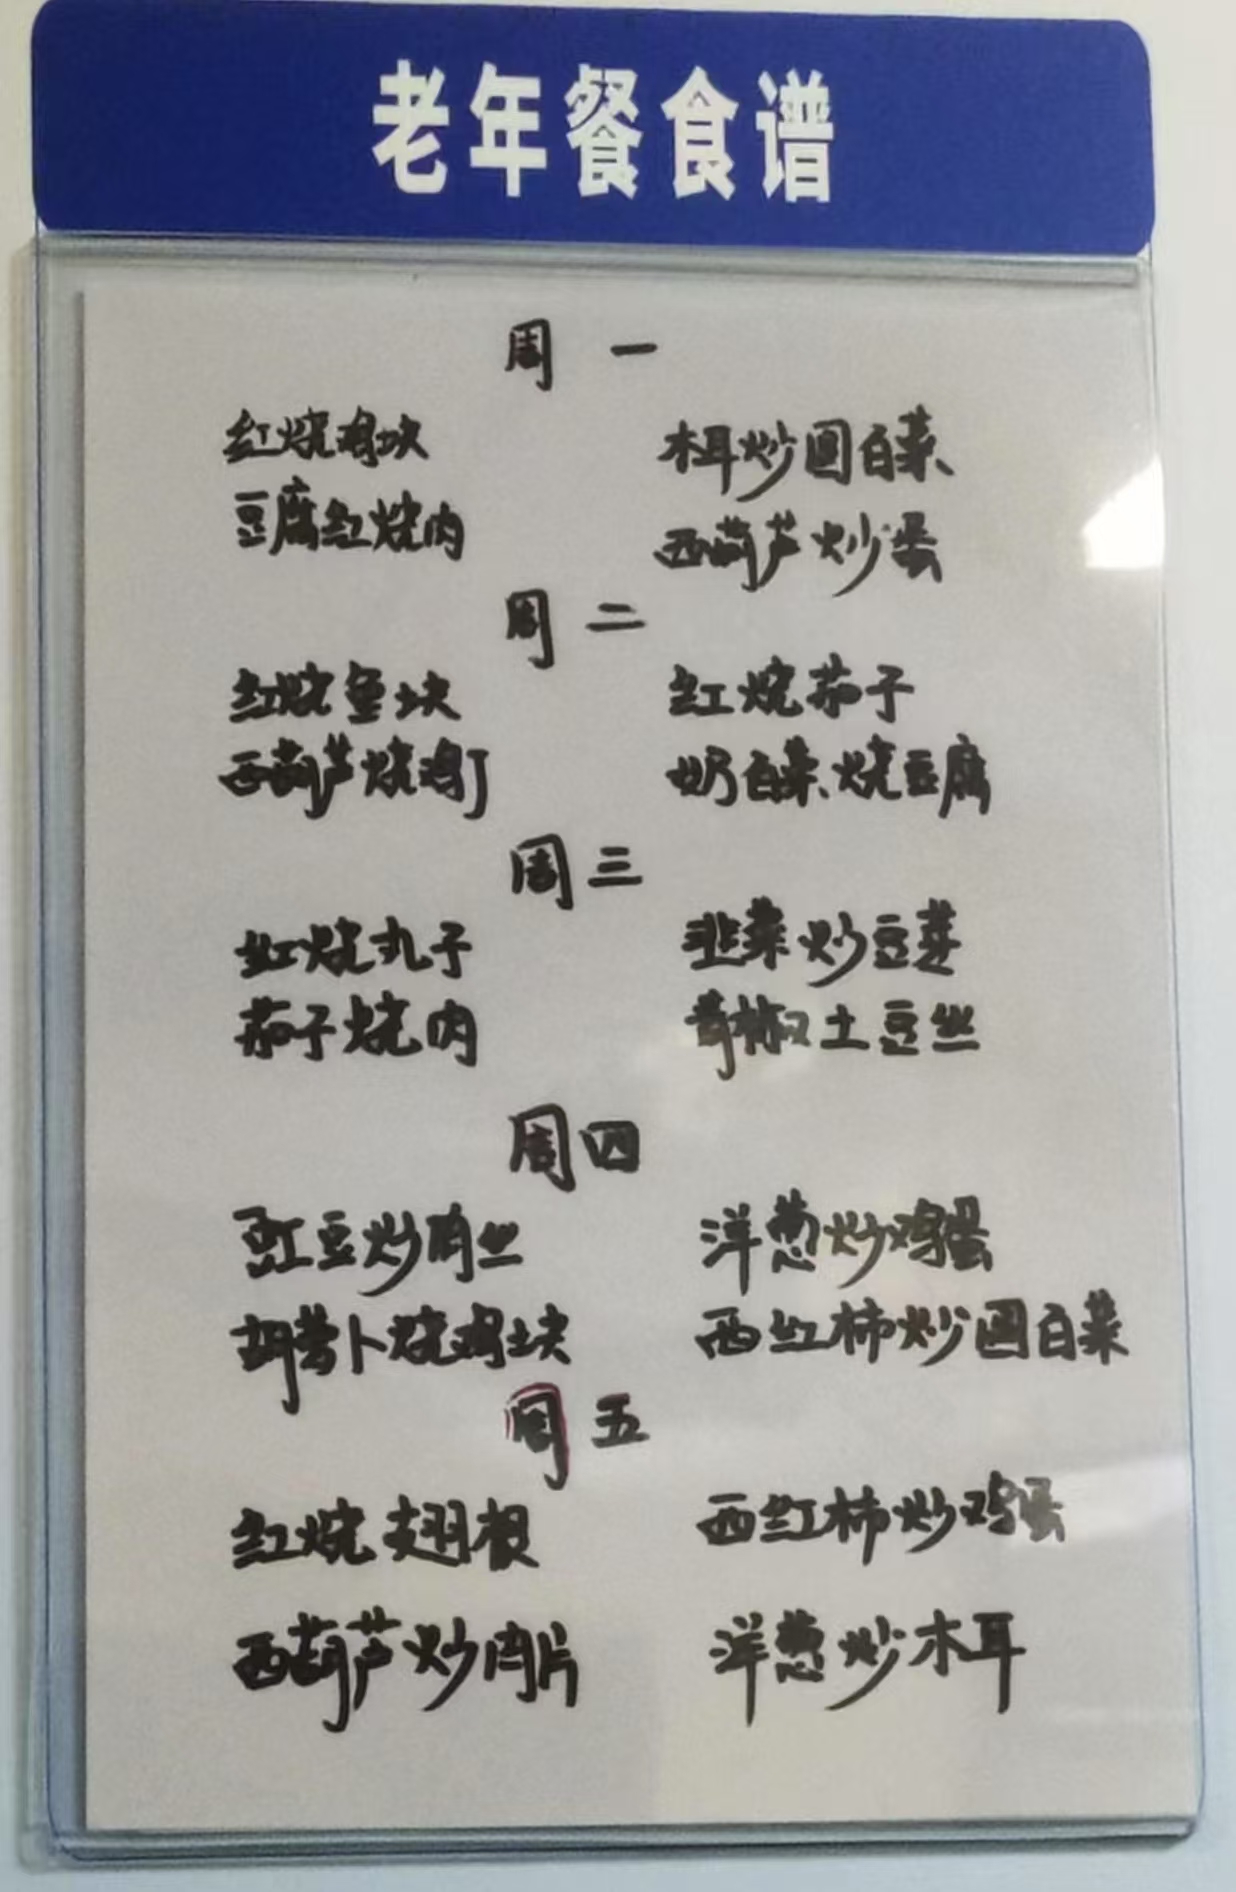 老年餐食谱
周一
红烧鸡块 木耳炒圆白菜
豆腐红烧肉 西葫芦炒蛋
周二
红烧鱼块 红烧茄子
西葫芦烧鸡丁 奶白菜烧豆腐
周三
红烧丸子 韭菜炒豆芽
茄子烧肉 青椒土豆丝
周四
豇豆炒肉丝 洋葱炒鸡蛋
胡萝卜烧鸡块 西红柿炒圆白菜
周五
红烧翅根 西红柿炒鸡蛋
西葫芦炒肉片 洋葱炒木耳